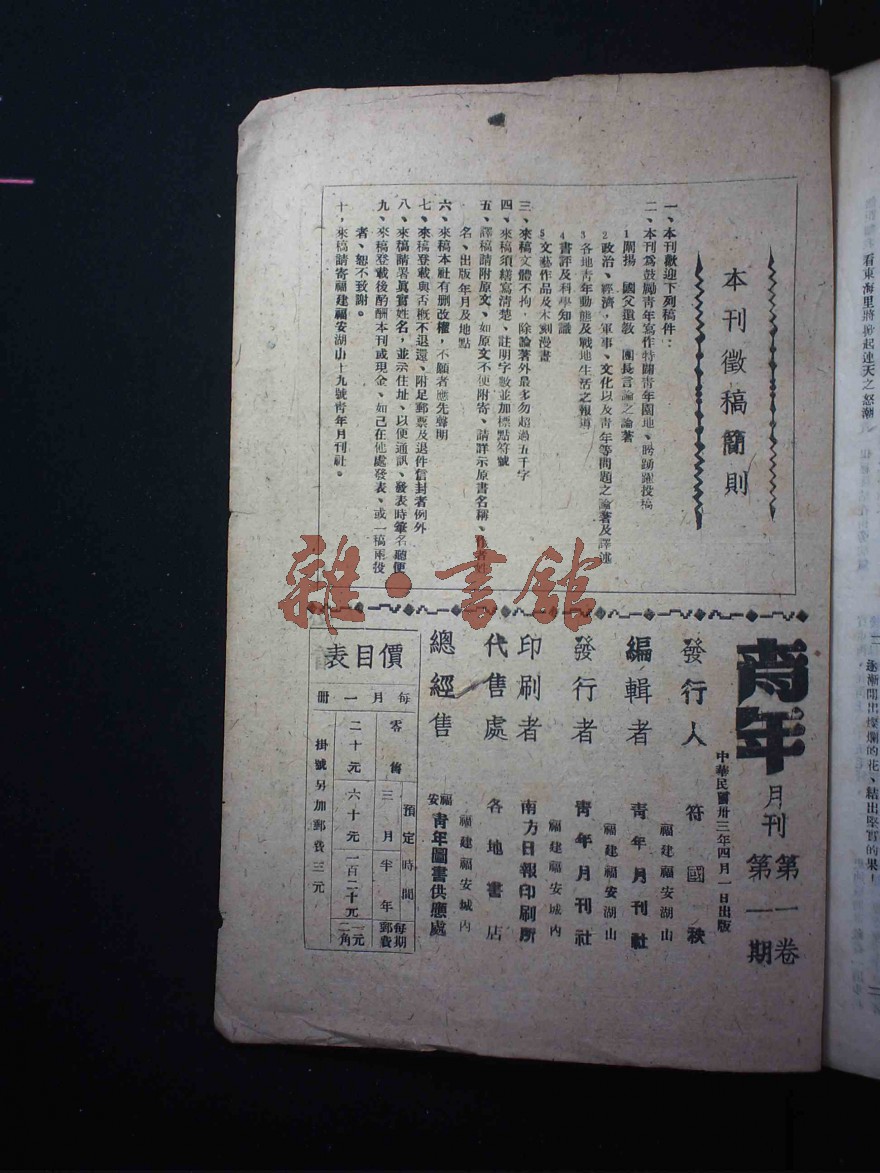 看東海里將掀起連天之怒潮
逐漸開出燦爛的花、結出堅實的果！
本刊徵稿簡則
一、本刊歡迎下列稿件：
二、本刊爲鼓勵青年寫作特闢青年園地、盼踴躍投稿
1闡揚　國父遺敎　團長言論之論著
2政治、經濟，軍事、文化以及青年等問題之論著及譯述
3各地青年動態及戰地生活之報導
4書評及科學知識
5文藝作品及木刻漫畫
三、來稿文體不拘，除論著外最多勿超過五千字
四、來稿須繕寫清楚、註明字數並加標點符號
五、譯稿請附原文、如原文不便附寄、請詳示原書名稱、作者姓
名、出版年月及地點
六、來稿本社有删改權，不願者應先聲明
七、來稿登載與否概不退還、附足郵票及退件信封者例外
八、來稿請署眞實姓名，並示住址、以便通訊、發表時筆名聽便
九、來稿登載後酌酬本刊或現金、如已在他處發表、或一稿兩投
者、恕不致謝。
十，來稿請寄福建福安湖山十九號青年月刊社。
青年月刊
第一卷
第一期
中華民國卅三年四月一日出版
發行人　符國秧
福建福安湖山
編輯者　青年月刊社
福建福安湖山
發行者　青年月刊社
福建福安城內
印刷者　南方日報印刷所
代售處　各地書店
福建福安城內
總經售　福安青年圖書供應處
價目表
每月一册
零售　二十元
預定時間
三月　六十元
半年　一百二十元
每期郵費　一元二角
掛號另加郵費三元
雜·書館